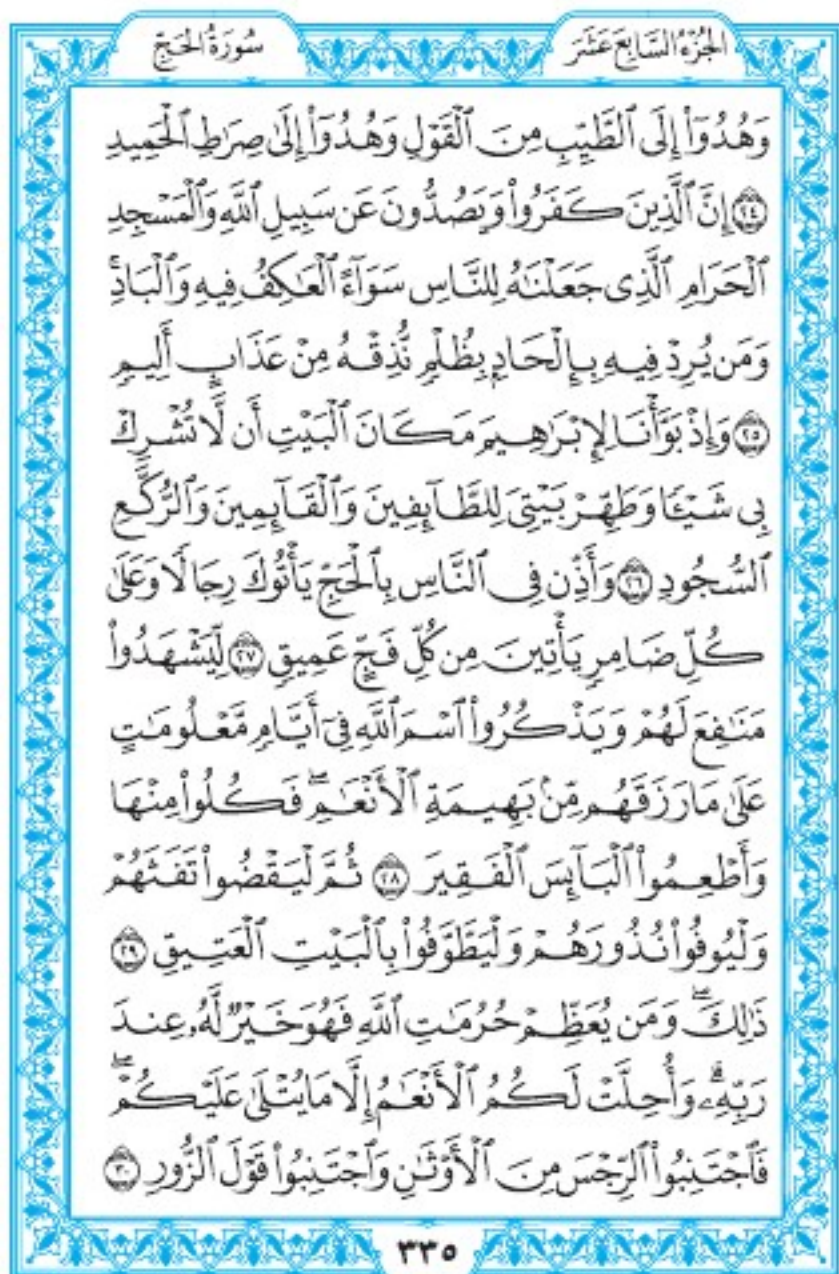 الجُزْءُ السَّابِعَ عَشَرَ
سُورَةُ الحَجِّ
وَهُدُوٓاْ إِلَى ٱلطَّيِّبِ مِنَ ٱلْقَوْلِ وَهُدُوٓاْ إِلَىٰ صِرَٰطِ ٱلْحَمِيدِ
﴿٢٤﴾ إِنَّ ٱلَّذِينَ كَفَرُواْ وَيَصُدُّونَ عَن سَبِيلِ ٱللَّهِ وَٱلْمَسْجِدِ
ٱلْحَرَامِ ٱلَّذِى جَعَلْنَٰهُ لِلنَّاسِ سَوَآءً ٱلْعَٰكِفُ فِيهِ وَٱلْبَادِۚ
وَمَن يُرِدْ فِيهِ بِإِلْحَادٍۭ بِظُلْمٍ نُّذِقْهُ مِنْ عَذَابٍ أَلِيمٍ
﴿٢٥﴾ وَإِذْ بَوَّأْنَا لِإِبْرَٰهِيمَ مَكَانَ ٱلْبَيْتِ أَن لَّا تُشْرِكْ
بِى شَيْـًٔا وَطَهِّرْ بَيْتِىَ لِلطَّآئِفِينَ وَٱلْقَآئِمِينَ وَٱلرُّكَّعِ
ٱلسُّجُودِ ﴿٢٦﴾ وَأَذِّن فِى ٱلنَّاسِ بِٱلْحَجِّ يَأْتُوكَ رِجَالًا وَعَلَىٰ
كُلِّ ضَامِرٍ يَأْتِينَ مِن كُلِّ فَجٍّ عَمِيقٍ ﴿٢٧﴾ لِّيَشْهَدُواْ
مَنَٰفِعَ لَهُمْ وَيَذْكُرُواْ ٱسْمَ ٱللَّهِ فِىٓ أَيَّامٍ مَّعْلُومَٰتٍ
عَلَىٰ مَا رَزَقَهُم مِّنۢ بَهِيمَةِ ٱلْأَنْعَٰمِۖ فَكُلُواْ مِنْهَا
وَأَطْعِمُواْ ٱلْبَآئِسَ ٱلْفَقِيرَ ﴿٢٨﴾ ثُمَّ لْيَقْضُواْ تَفَثَهُمْ
وَلْيُوفُواْ نُذُورَهُمْ وَلْيَطَّوَّفُواْ بِٱلْبَيْتِ ٱلْعَتِيقِ ﴿٢٩﴾
ذَٰلِكَۖ وَمَن يُعَظِّمْ حُرُمَٰتِ ٱللَّهِ فَهُوَ خَيْرٌ لَّهُۥ عِندَ
رَبِّهِۦۗ وَأُحِلَّتْ لَكُمُ ٱلْأَنْعَٰمُ إِلَّا مَا يُتْلَىٰ عَلَيْكُمْۖ
فَٱجْتَنِبُواْ ٱلرِّجْسَ مِنَ ٱلْأَوْثَٰنِ وَٱجْتَنِبُواْ قَوْلَ ٱلزُّورِ ﴿٣٠﴾
٣٣٥